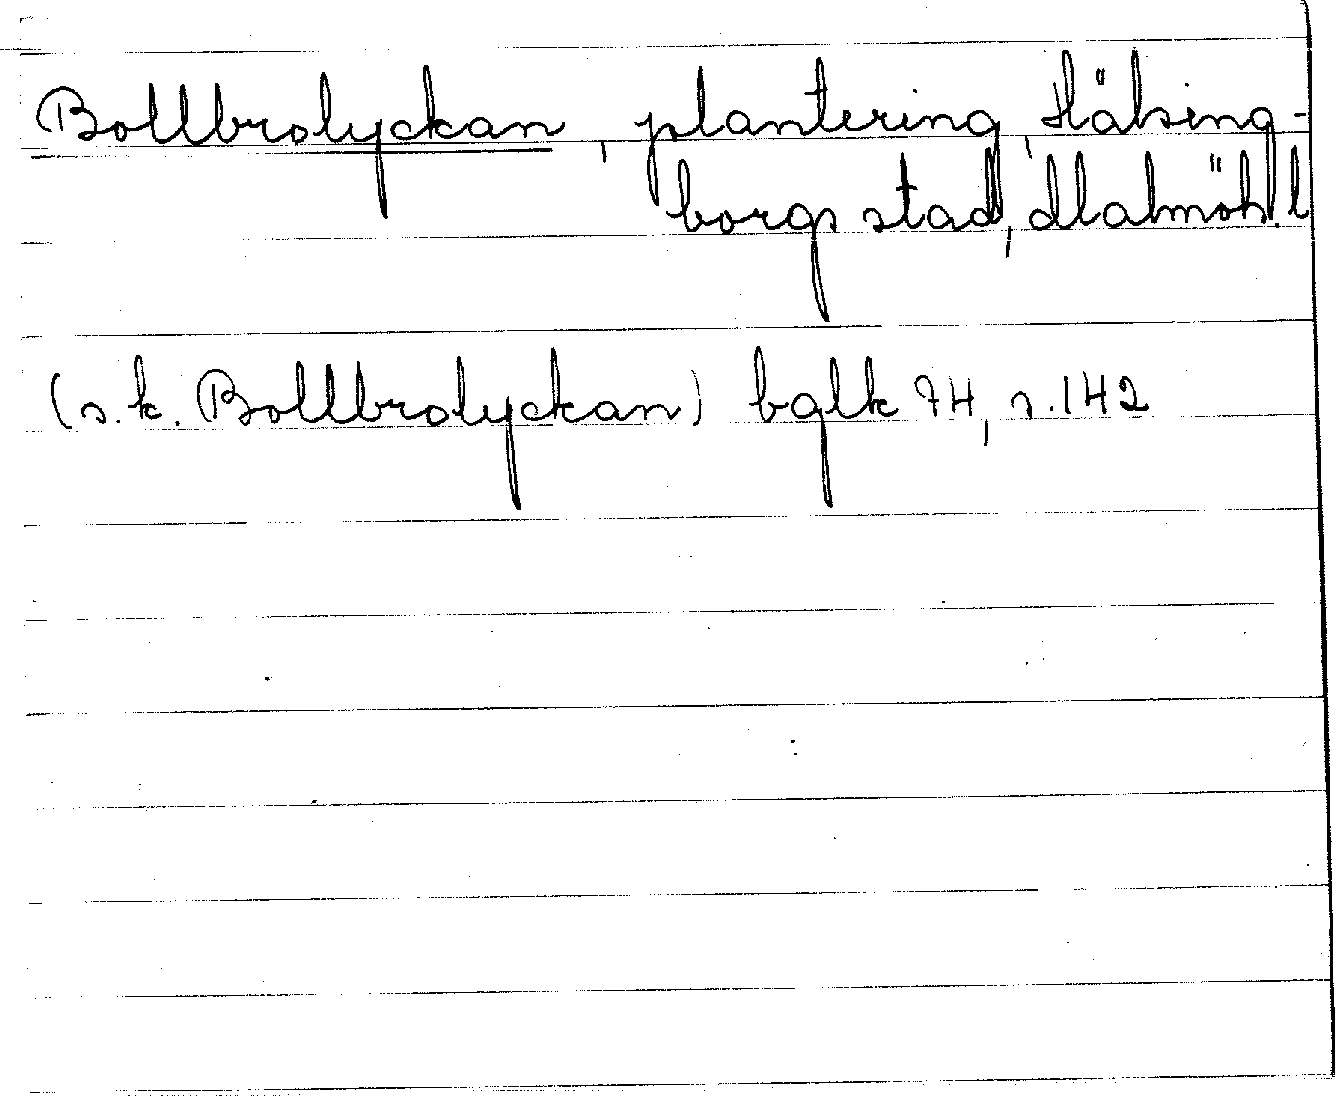 Bollbrolyckan, plantering, Hälsing-
borgs stad, Malmöh. l
(s.k. Bollbrolyckan) bglk 74, s. 142